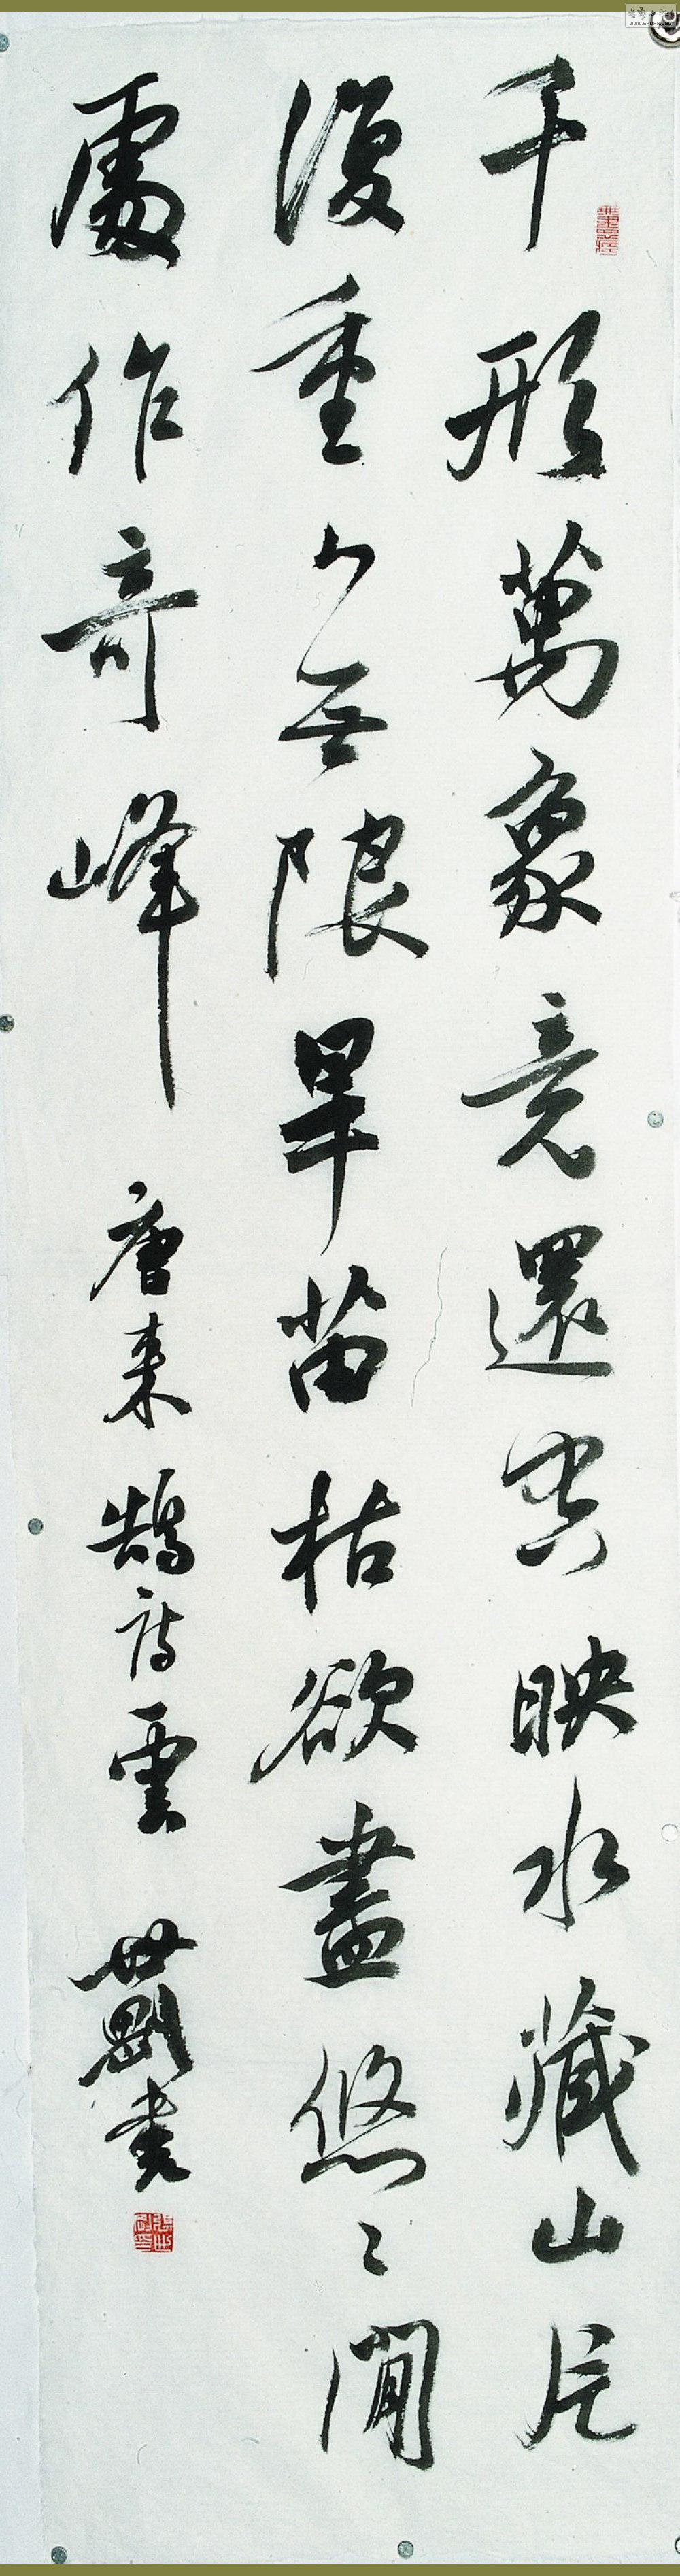 千形萬象竟還空映水藏山片
復重々無限旱苗枯欲盡悠々閒
處作奇峰 唐来鵠詩雲 世剛書